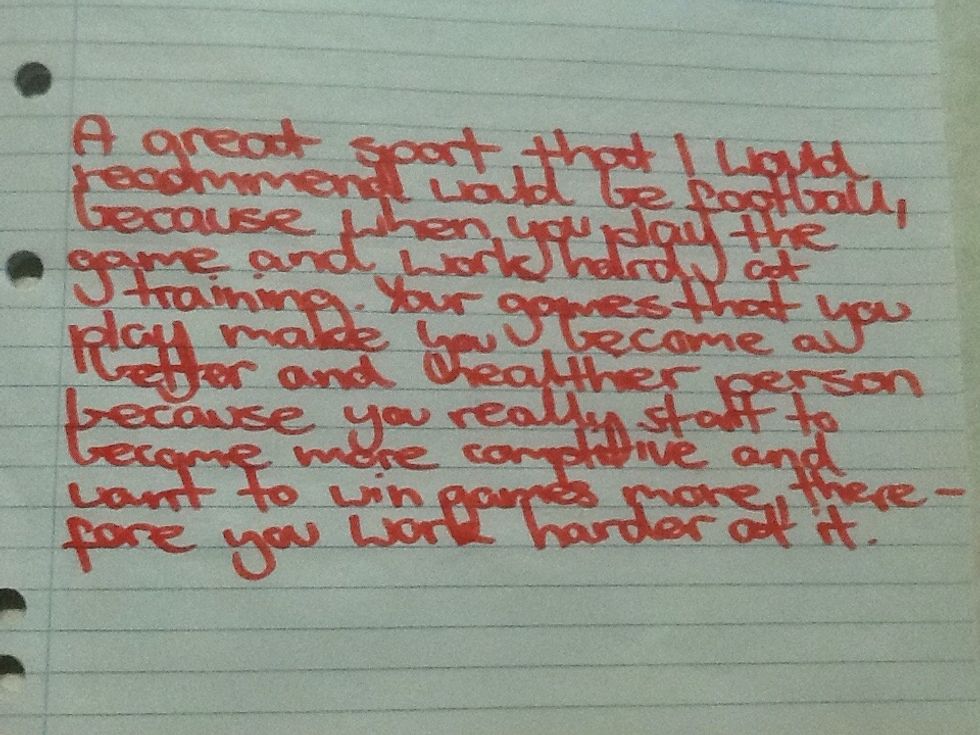 A great sport that I would
recommend would be football,
because when you play the
game and work hard at
training. Your games that you
play make you become a
better and healthier person
because you really start to
become more comptitive and
want to win games more, there-
fore you work harder at it.